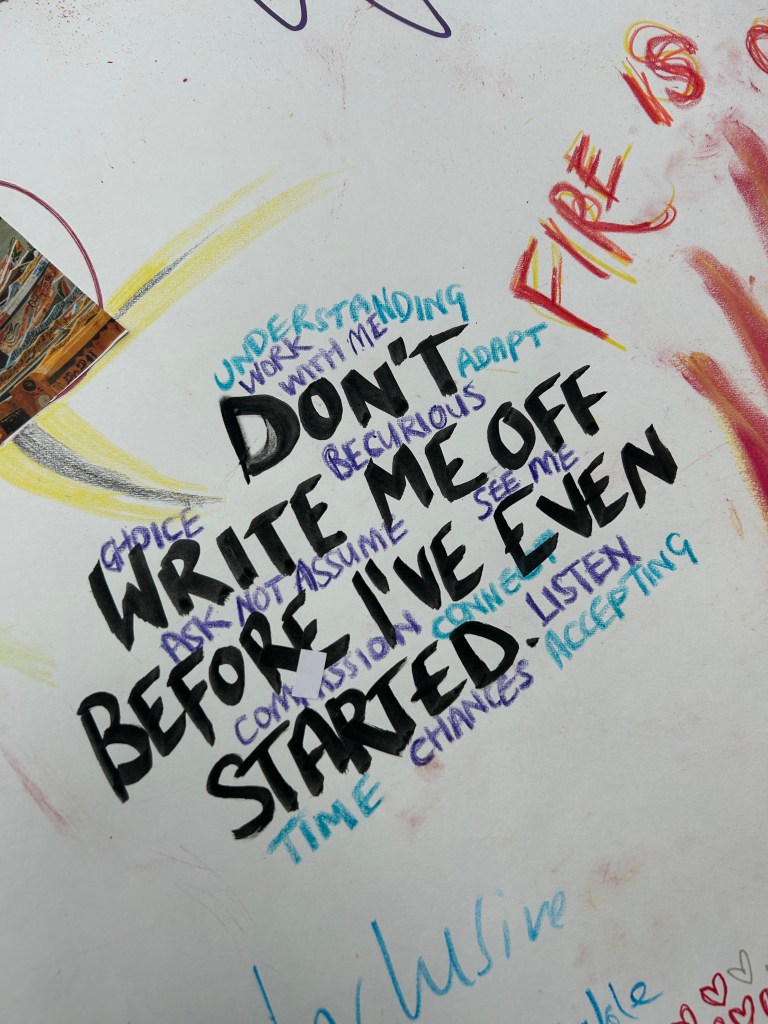 FIRE IS
UNDERSTANDING
WORK
WITH ME
DON'T
ADAPT
BECURIOUS
WRITE ME OFF
CHOICE
SEE ME
ASK NOT ASSUME
BEFORE I'VE EVEN
CONNECT
LISTEN
ACCEPTING
STARTED.
CHANCES
TIME